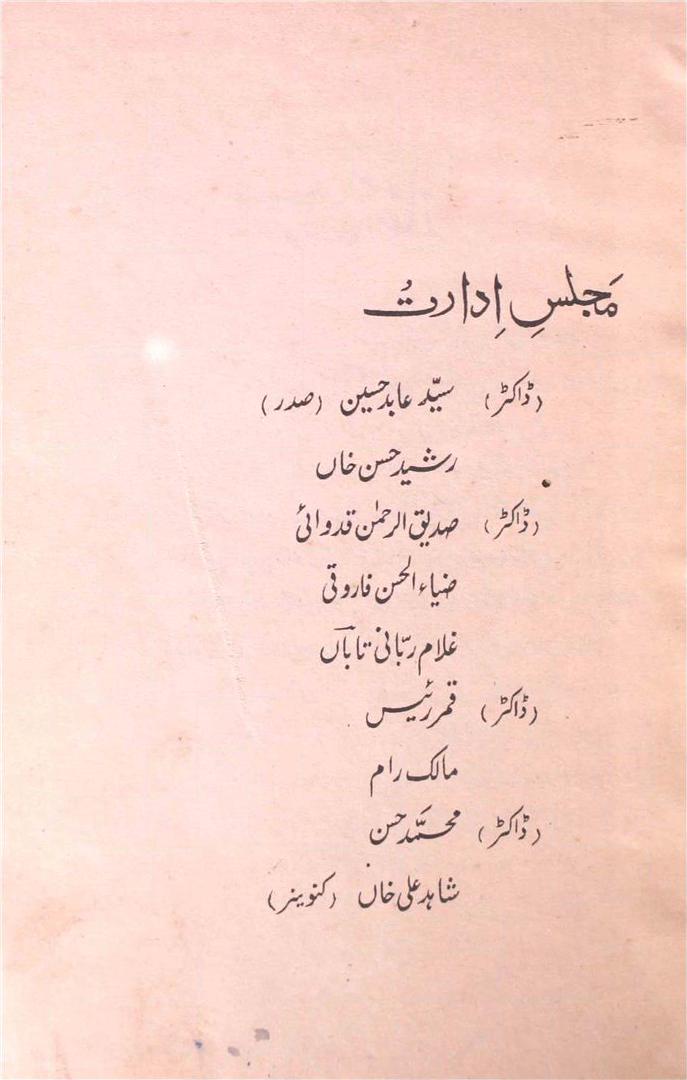 مَجلسِ اِدارتُ
(ڈاکٹر) سیّد عابد حسین (صدر)
رشید حسن خاں
(ڈاکٹر) صدیق الرحمٰن قدوائی
ضیاء الحسن فاروقی
غلام ربّانی تاباںؔ
(ڈاکٹر) قمر رئیس
مالک رام
(ڈاکٹر) محمّد حسن
شاہد علی خاں (کنوینر)